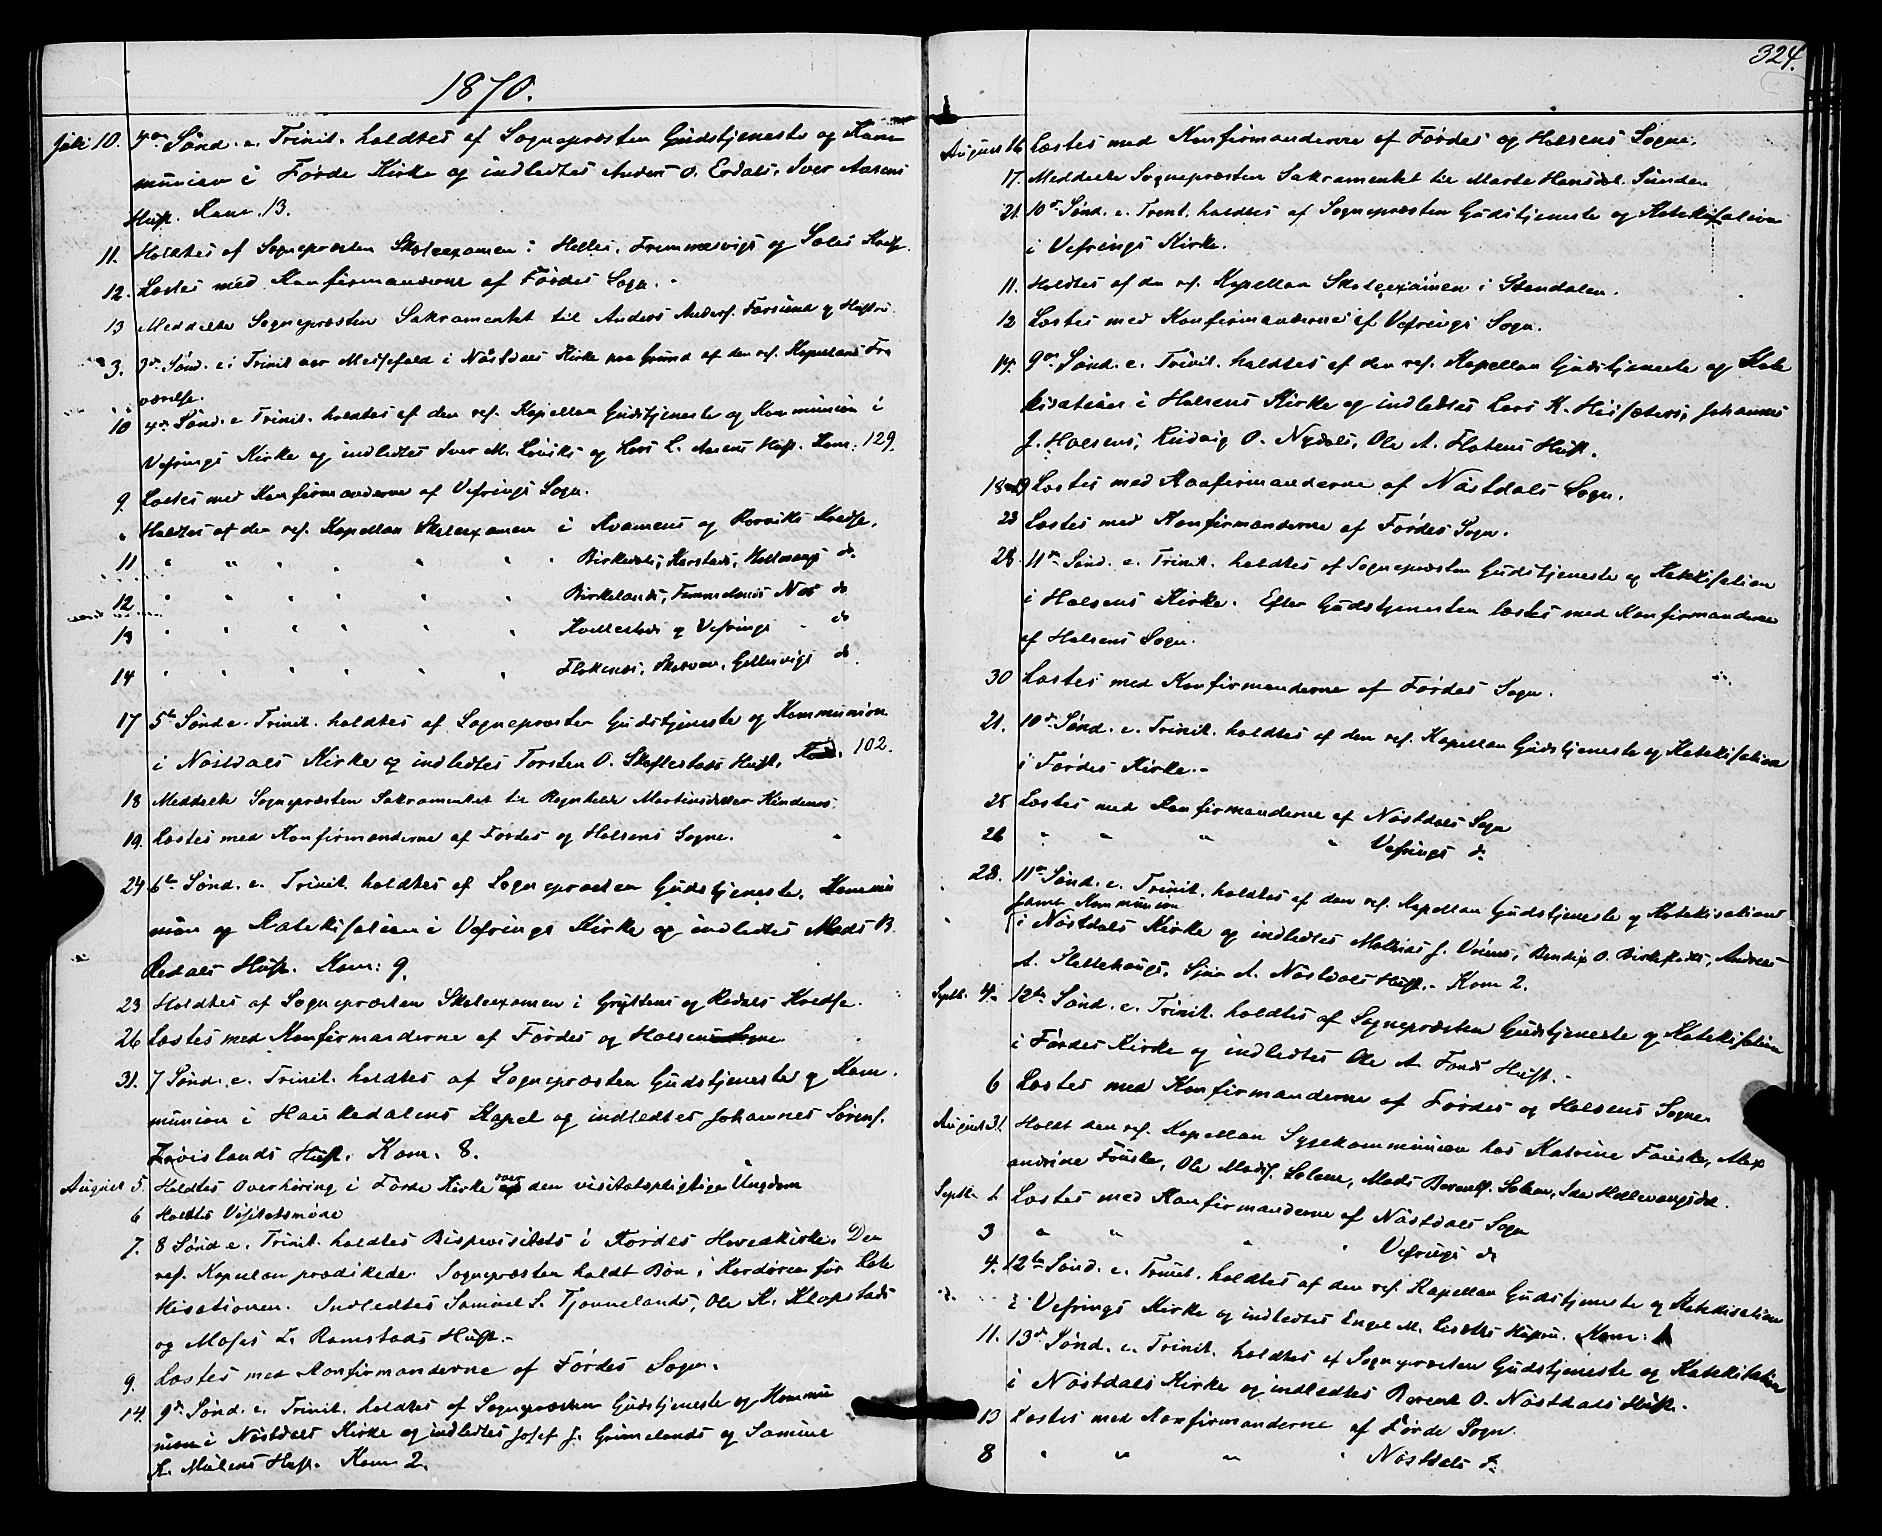 1870.
Juli 10. 4de Sønd. e. Trinit. holdtes af Sognepræsten Gudstjeneste og Kom
munion i Førde Kirke og indledtes Anders O. Erdals, Iver Aasens
Hust. Kom. 13.
11. Holdtes af Sognepræsten Skoleexamen i Helles, og Soles Kreds.
12. Læstes med Konfirmanderne af Førdes Sogn.
13 Meddelte Sognepræsten Sakramentet til Anders Anders. Farsund og Hustru.
3. 3de Sønd. e. Trinit var Messefald i Nøstdals Kirke paa Grund af den res. Kapellans Fra
værelse.
10 4de Sønd. e Trinit. holdtes af den res. Kapellan Gudstjeneste og Kommunion i
Vefrings Kirke og indledtes Iver M. Løviks og Lars L. Aasens Hust. Kom. 129.
9. Læstes med Konfirmanderne af Vefrings Sogn.
" Holdtes af den res. Kapellan Skoleexamen i Kvamens og Rorviks Kredse.
11 " " " " " " " Birkedals, Karstads, do
12 " " " " " " Birkelands, Næs do
13 " " " " " " Kvellestads og Vefrings - do
14 " " " " " " Flokenes, Skorven, Gjelsvigs do
17 5te Sønd e. Trinit. holdtes af Sognepræsten Gudstjeneste og Kommunion
i Nøstdals Kirke og indledtes Torsten O. Skaflestads Hust. Kom. 102.
18 Meddelte Sognepræsten Sakramentet til Ragnhilde Martinsdatter
19. Læstes med Konfirmanderne af Førdes og Holsens Sogne.
24 6te Sønd. e. Trinit. holdtes af Sognepræsten Gudstjeneste, Kommu
nion og Katekisation i Vefrings Kirke og indledtes Mads B.
Redals Hust. Kom: 9.
23 Holdtes af Sognepræsten Skoleexamen i og Redals Kredse.
26 Læstes med Konfirmanderne af Førdes og Holsens Sogne
31. 7 Sønd. e. Trinit. holdtes af Sognepræsten Gudstjeneste og Kom.
munion i Haukedalens Kapel og indledtes Johannes Sørens.
Hust. Kom. 8.
August 5. Holdtes Overhøring i Førde Kirke over den visitatspligtige Ungdom
6 Holdtes Visitatsmøde
7. 8 Sønd e. Trinit. holdtes Bispevisitats i Førdes Hovedkirke. Den
res. Kapellan prædikede. Sognepræsten holdt Bøn i Kordøren før Kate
kisationen. Indledtes Samuel S. Tjønnelands, Ole K. Klopstads
og Moses L. Ramstads Hust.-
9. Læstes med Konfirmanderne af Førdes Sogn.
14. 9de Sønd. e. Trinit. holdtes af Sognepræsten Gudstjeneste og Kommu
nion i Nøstdals Kirke og indledtes Josef J. Grimelands og Samuel
K. Mulens Hust. Kom 2.
324.
August 16. Læstes med Konfirmanderne af Førdes og Holsens Sogne.
17. Meddelte Sognepræsten Sakramentet til Marte Hansdt. Sunden
21. 10de Sønd. e. Trinit. holdtes af Sognepræsten Gudstjeneste og Katekisation
i Vefrings Kirke.
11. Holdtes af den res. Kapellan Skoleexamen i Stendalen.
12 Læstes med Konfirmanderne af Vefrings Sogn.
14. 9de Sønd. e. Trinit. holdtes af den res. Kapellan Gudstjeneste og Kate
kisation i Holsens Kirke og indledtes Lars K. Johannes
J. Holsens, Ludvig O. Nydals, Ole A. Flatens Hust.
18 og 19 Læstes med Konfirmanderne af Nøstdals Sogn.
23 Læstes med Konfirmanderne af Førdes Sogn.
28. 11te Sønd. e. Trinit. holdtes af Sognepræsten Gudstjeneste og Katekisation
i Holsens Kirke. Efter Gudstjenesten læstes med Konfirmanderne
af Holsens Sogn.
30 Læstes med Konfirmanderne af Førdes Sogn.
21. 10de Sønd. e. Trinit. holdtes af den res. Kapellan Gudstjeneste og Katekisation
i Førdes Kirke.-
25 Læstes med Konfirmanderne af Nøstdals Sogn
26 " " " " Vefrings do
28. 11te Sønd. e. Trinit. holdtes af den res. Kapellan Gudstjeneste og Katekisation
samt Kommunion
i Nøstdals Kirke og indledtes Mathias J. Bendix O. Anders
A. A. Nøstdals Hust.- Kom 2.
Septb. 4. 12te Sønd. e. Trinit. holdtes af Sognepræsten Gudstjeneste og Katekisation
i Førdes Kirke og indledtes Ole A. Hust.-
6 Læstes med Konfirmanderne af Førdes og Holsens Sogne.
August 31. Holdt den res. Kapellan Sygekommunion hos Katrine Fauske, Alex
andrine Fauske, Ole Mads. Solem, Mads Solem,
Septb. 1. Læstes med Konfirmanderne af Nøstdals Sogn
3 " " " " Vefrings do
4. 12te Sønd. e. Trinit. holdtes af den res. Kapellan Gudstjeneste og Katekisation
i Vefrings Kirke og indledtes Engel M. Hustru. Kom:
11. 13de Sønd. e. Trinit. holdtes af Sognepræsten Gudstjeneste og Katekisation
i Nøstdals Kirke og indledtes Berent O. Nøstdals Hust.-
13 Læstes med Konfirmanderne af Førde Sogn.
8 " " " " Nøstdals do